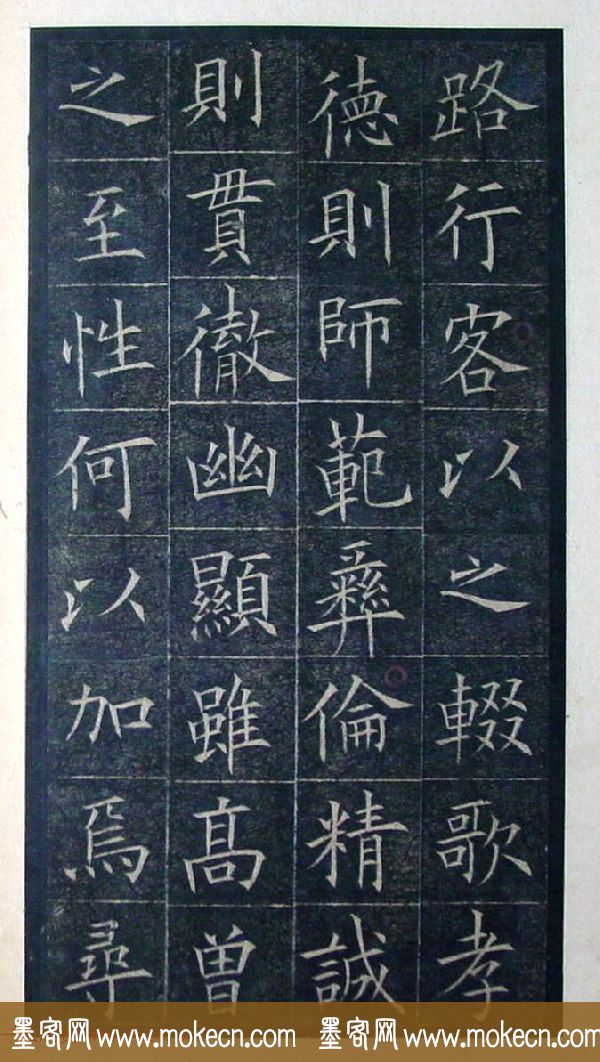 路行客以之輟歌孝
德則師範彝倫精誠
則貫徹幽顯雖高曾
之至性何以加焉尋
墨客网 www.mokecn.com 墨客网 www.mokecn.com